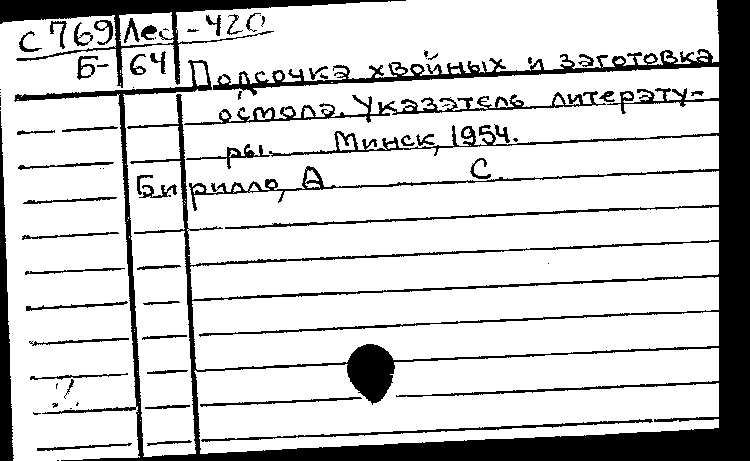 С 769 Лес - 420
Б- 64 Подсочка хвойных и заготовка
осмола. Указатель литерату-
ры. Минск, 1954.
Бирилло, А. С.
2.